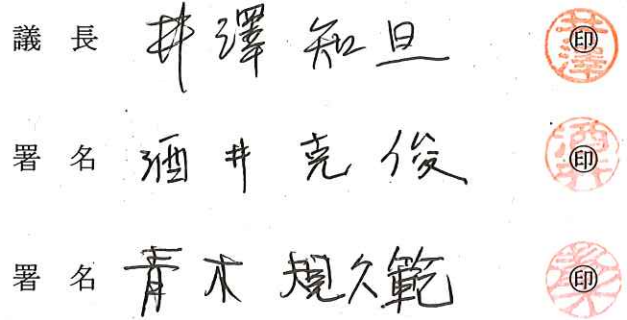 議長 井澤知旦 ㊞
署名 酒井克俊 ㊞
署名 青木規久範 ㊞